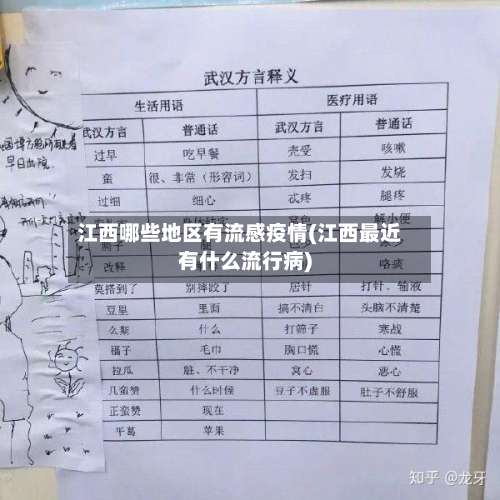 武汉方言释义
生活用语 医疗用语
武汉方言 普通话 武汉方言 普通话
过早 吃早餐 壳受 咳嗽
蛮 很、非常（形容词） 发扫 发烧
过细 细心 忒疼 腿疼
解小便
江西哪些地区有流感疫情(江西最近
有什么流行病)
改释
莫搭到了 别摔跤了 居针 打针、输液
豆里 里面 搞不清白 头脑不清楚
么斯 什么 打筛子 寒战
毛巾 胸口慌 心慌
拉瓜 脏、不干净 窝心 恶心
几蛮赞 什么时候 豆子不虚服 肚子不舒服
正蛮赞 现在
平葛 苹果
早日出院
知乎 @龙牙